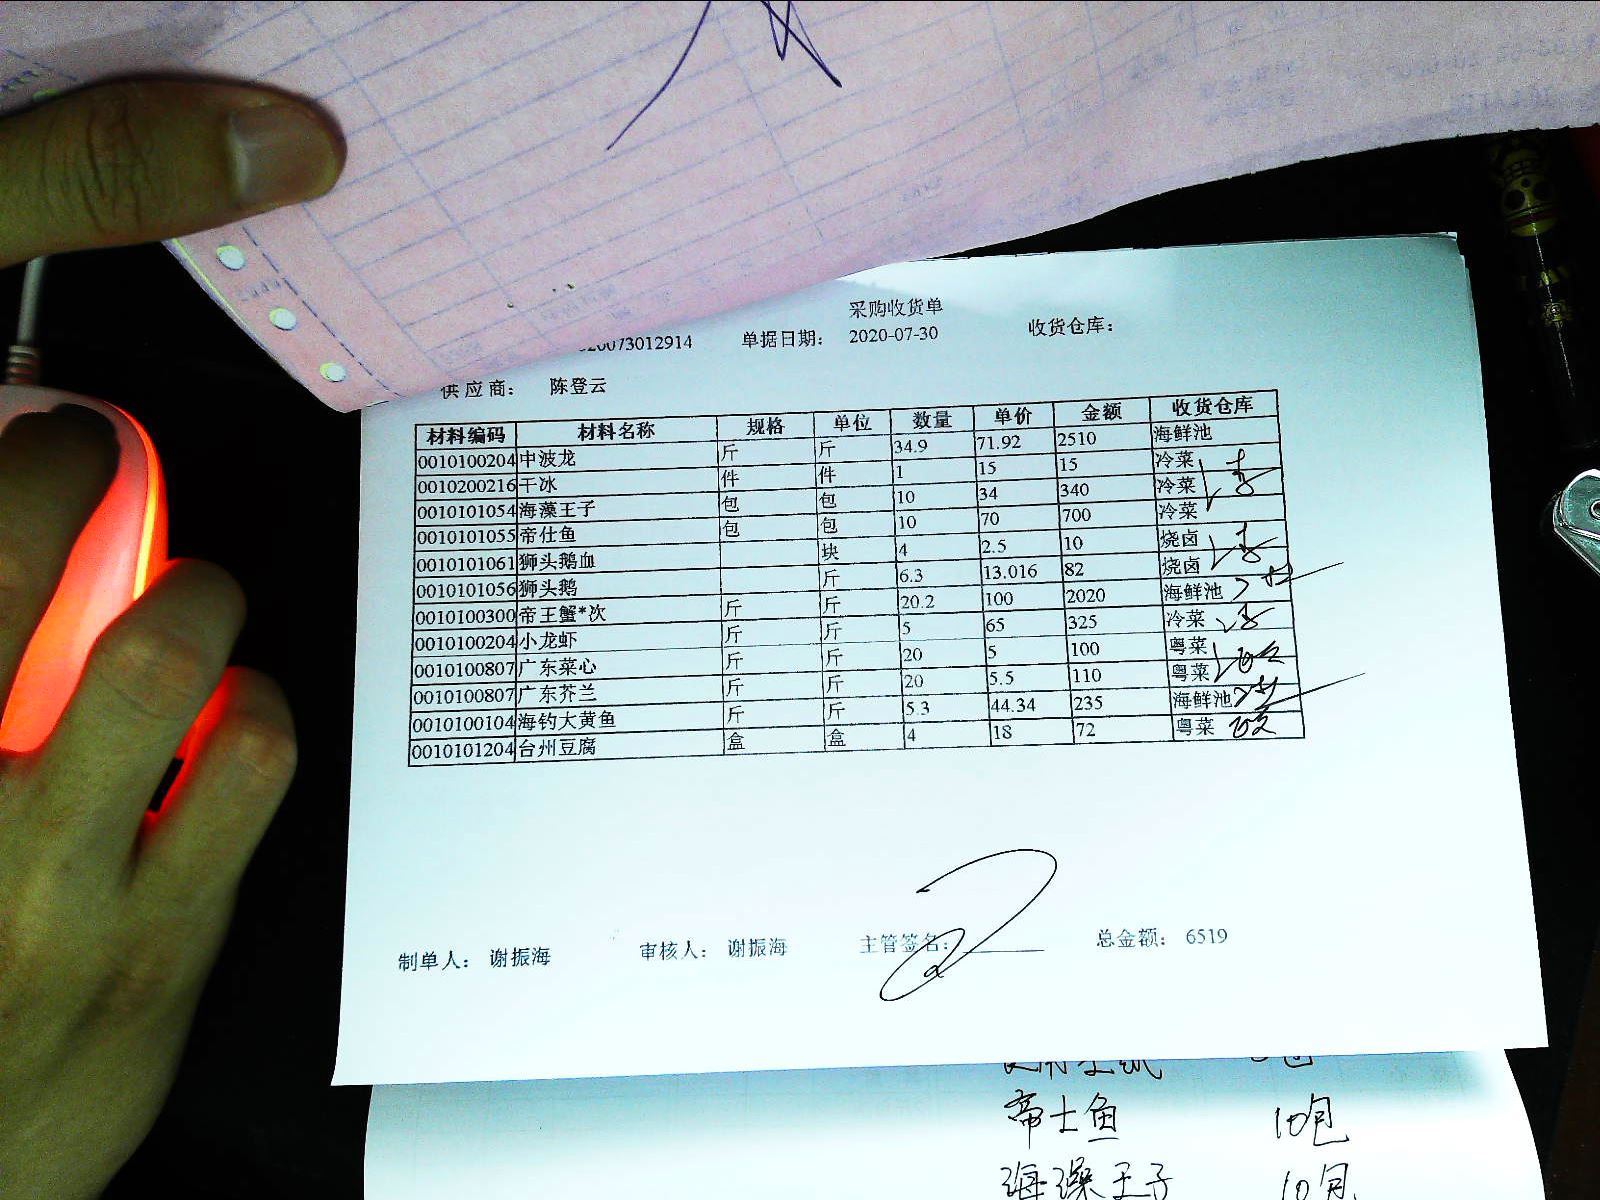 采购收货单
20073012914 单据日期： 2020-07-30 收货仓库：
供应商： 陈登云
材料编码 材料名称 规格 单位 数量 单价 金额 收货仓库
0010100204 中波龙 斤 斤 34.9 71.92 2510 海鲜池
0010200216 干冰 件 件 1 15 15 冷菜
0010101054 海藻王子 包 包 10 34 340 冷菜
0010101055 帝仕鱼 包 包 10 70 700 冷菜
0010101061 狮头鹅血 块 4 2.5 10 烧卤
0010101056 狮头鹅 斤 6.3 13.016 82 烧卤
0010100300 帝王蟹*次 斤 斤 20.2 100 2020 海鲜池
0010100204 小龙虾 斤 斤 5 65 325 冷菜
0010100807 广东菜心 斤 斤 20 5 100 粤菜
0010100807 广东芥兰 斤 斤 20 5.5 110 粤菜
0010100104 海钓大黄鱼 斤 斤 5.3 44.34 235 海鲜池
0010101204 台州豆腐 盒 盒 4 18 72 粤菜
制单人： 谢振海 审核人： 谢振海 主管签名： 总金额： 6519
帝士鱼 10包
海澡王子 10包